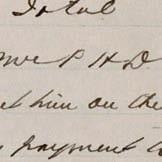 Total
Mr P H D
et him on the
payment